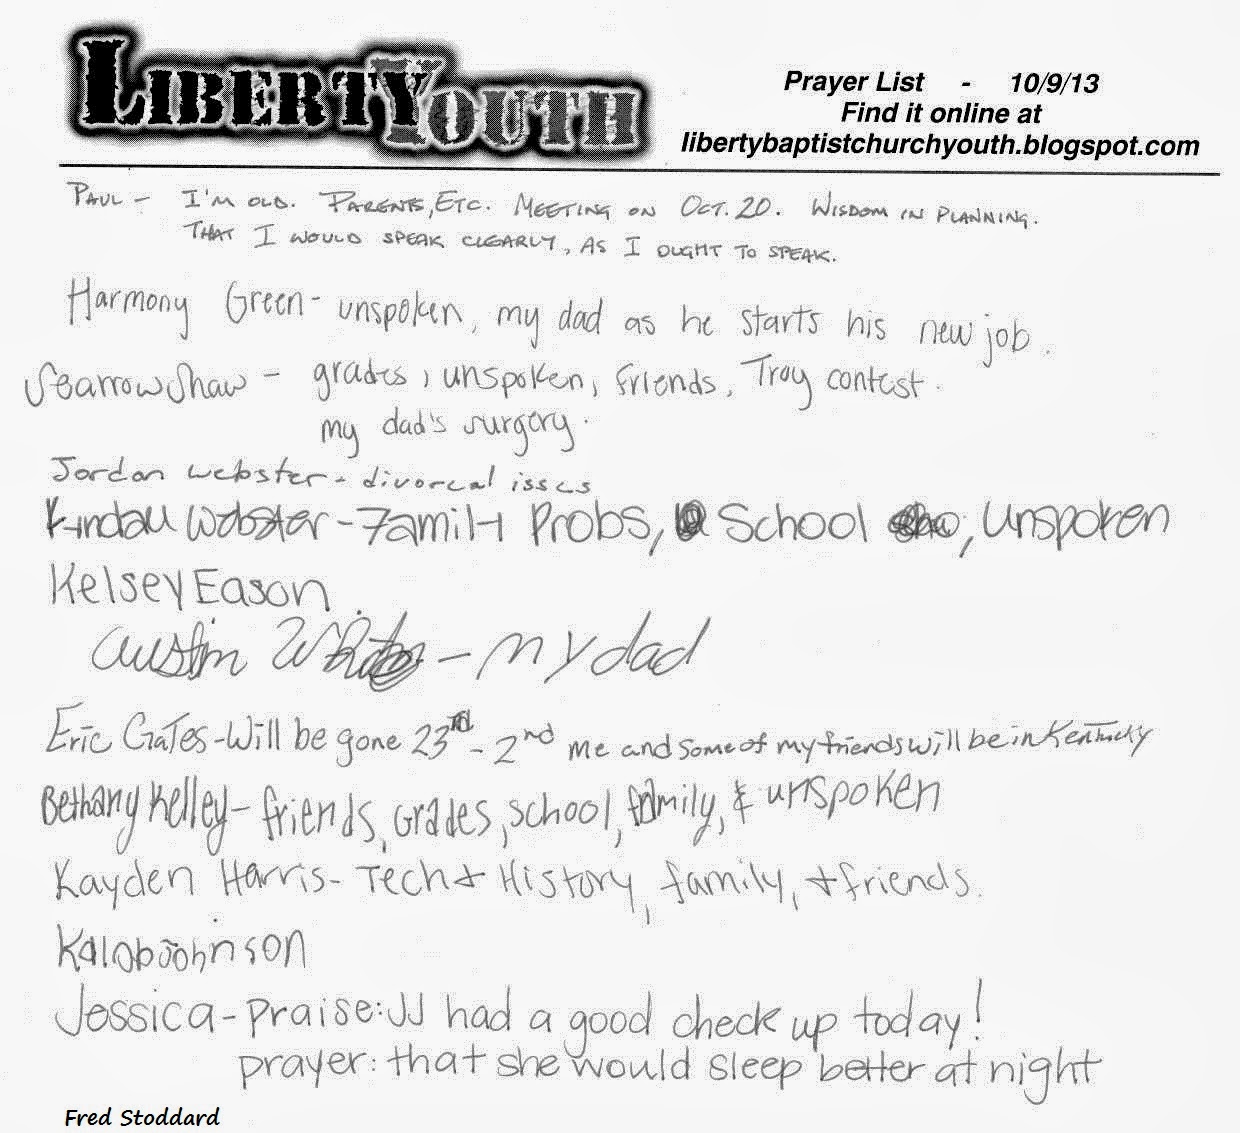 LIBERTY YOUTH
Prayer List - 10/9/13
Find it online at
libertybaptistchurchyouth.blogspot.com
PAUL - I'M OLD. PARENTS, ETC. MEETING ON OCT. 20. WISDOM IN PLANNING.
THAT I WOULD SPEAK CLEARLY, AS I OUGHT TO SPEAK.
Harmony Green - unspoken, my dad as he starts his new job.
Shaw - grades, unspoken, friends, Troy contest.
my dad's surgery.
Jordan Webster - divorcal isses
Webster - Family Probs, School, Unspoken
Kelsey Eason
Austin - my dad
Eric Gates - Will be gone 23rd - 2nd me and some of my friends will be in Kentucky
Bethany Kelley - friends, Grades, school, family, & unspoken
Kayden Harris - Tech + History, family, + friends.
Kalob Johnson
Jessica - Praise: JJ had a good check up today!
prayer: that she would sleep better at night
Fred Stoddard